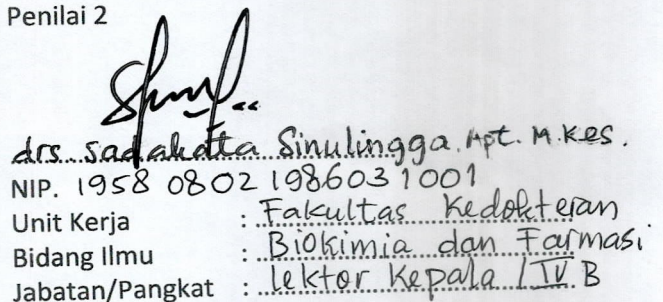 Penilai 2
drs. Sadakatta Sinulingga. Apt. M. Kes.
NIP. 1958 0802 198603 1001
Unit Kerja : Fakultas Kedokteran
Bidang Ilmu : Biokimia dan Farmasi
Jabatan/Pangkat : Lektor Kepala / IV B